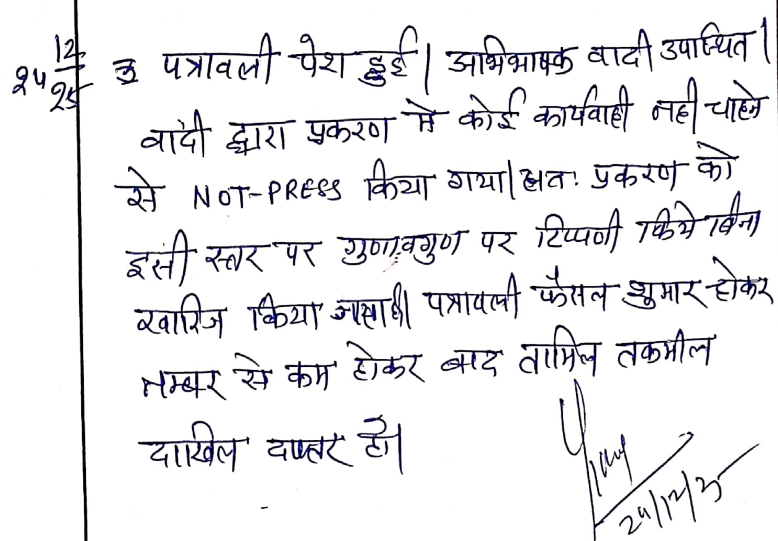 24 12/25 पत्रावली पेश हुई। अभिभाषक वादी उपास्थित।
वादी द्वारा प्रकरण में कोई कार्यवाही नही चाहने
से NOT-PRESS किया गया। अतः प्रकरण को
इसी स्तर पर गुणावगुण पर टिप्पणी किये बिना
खारिज किया जाता है। पत्रावली फैसल शुमार होकर
नम्बर से कम होकर बाद तामिल तकमील
दाखिल दफ्तर हो।
24/12/25